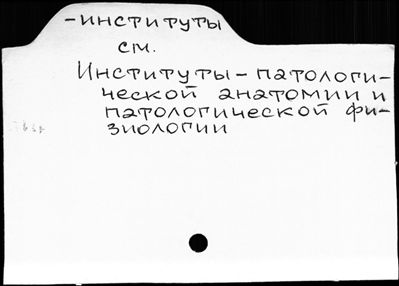 -институты
см.
Институты - патологи-
ческой анатомии и
патологической фи-
зиологии